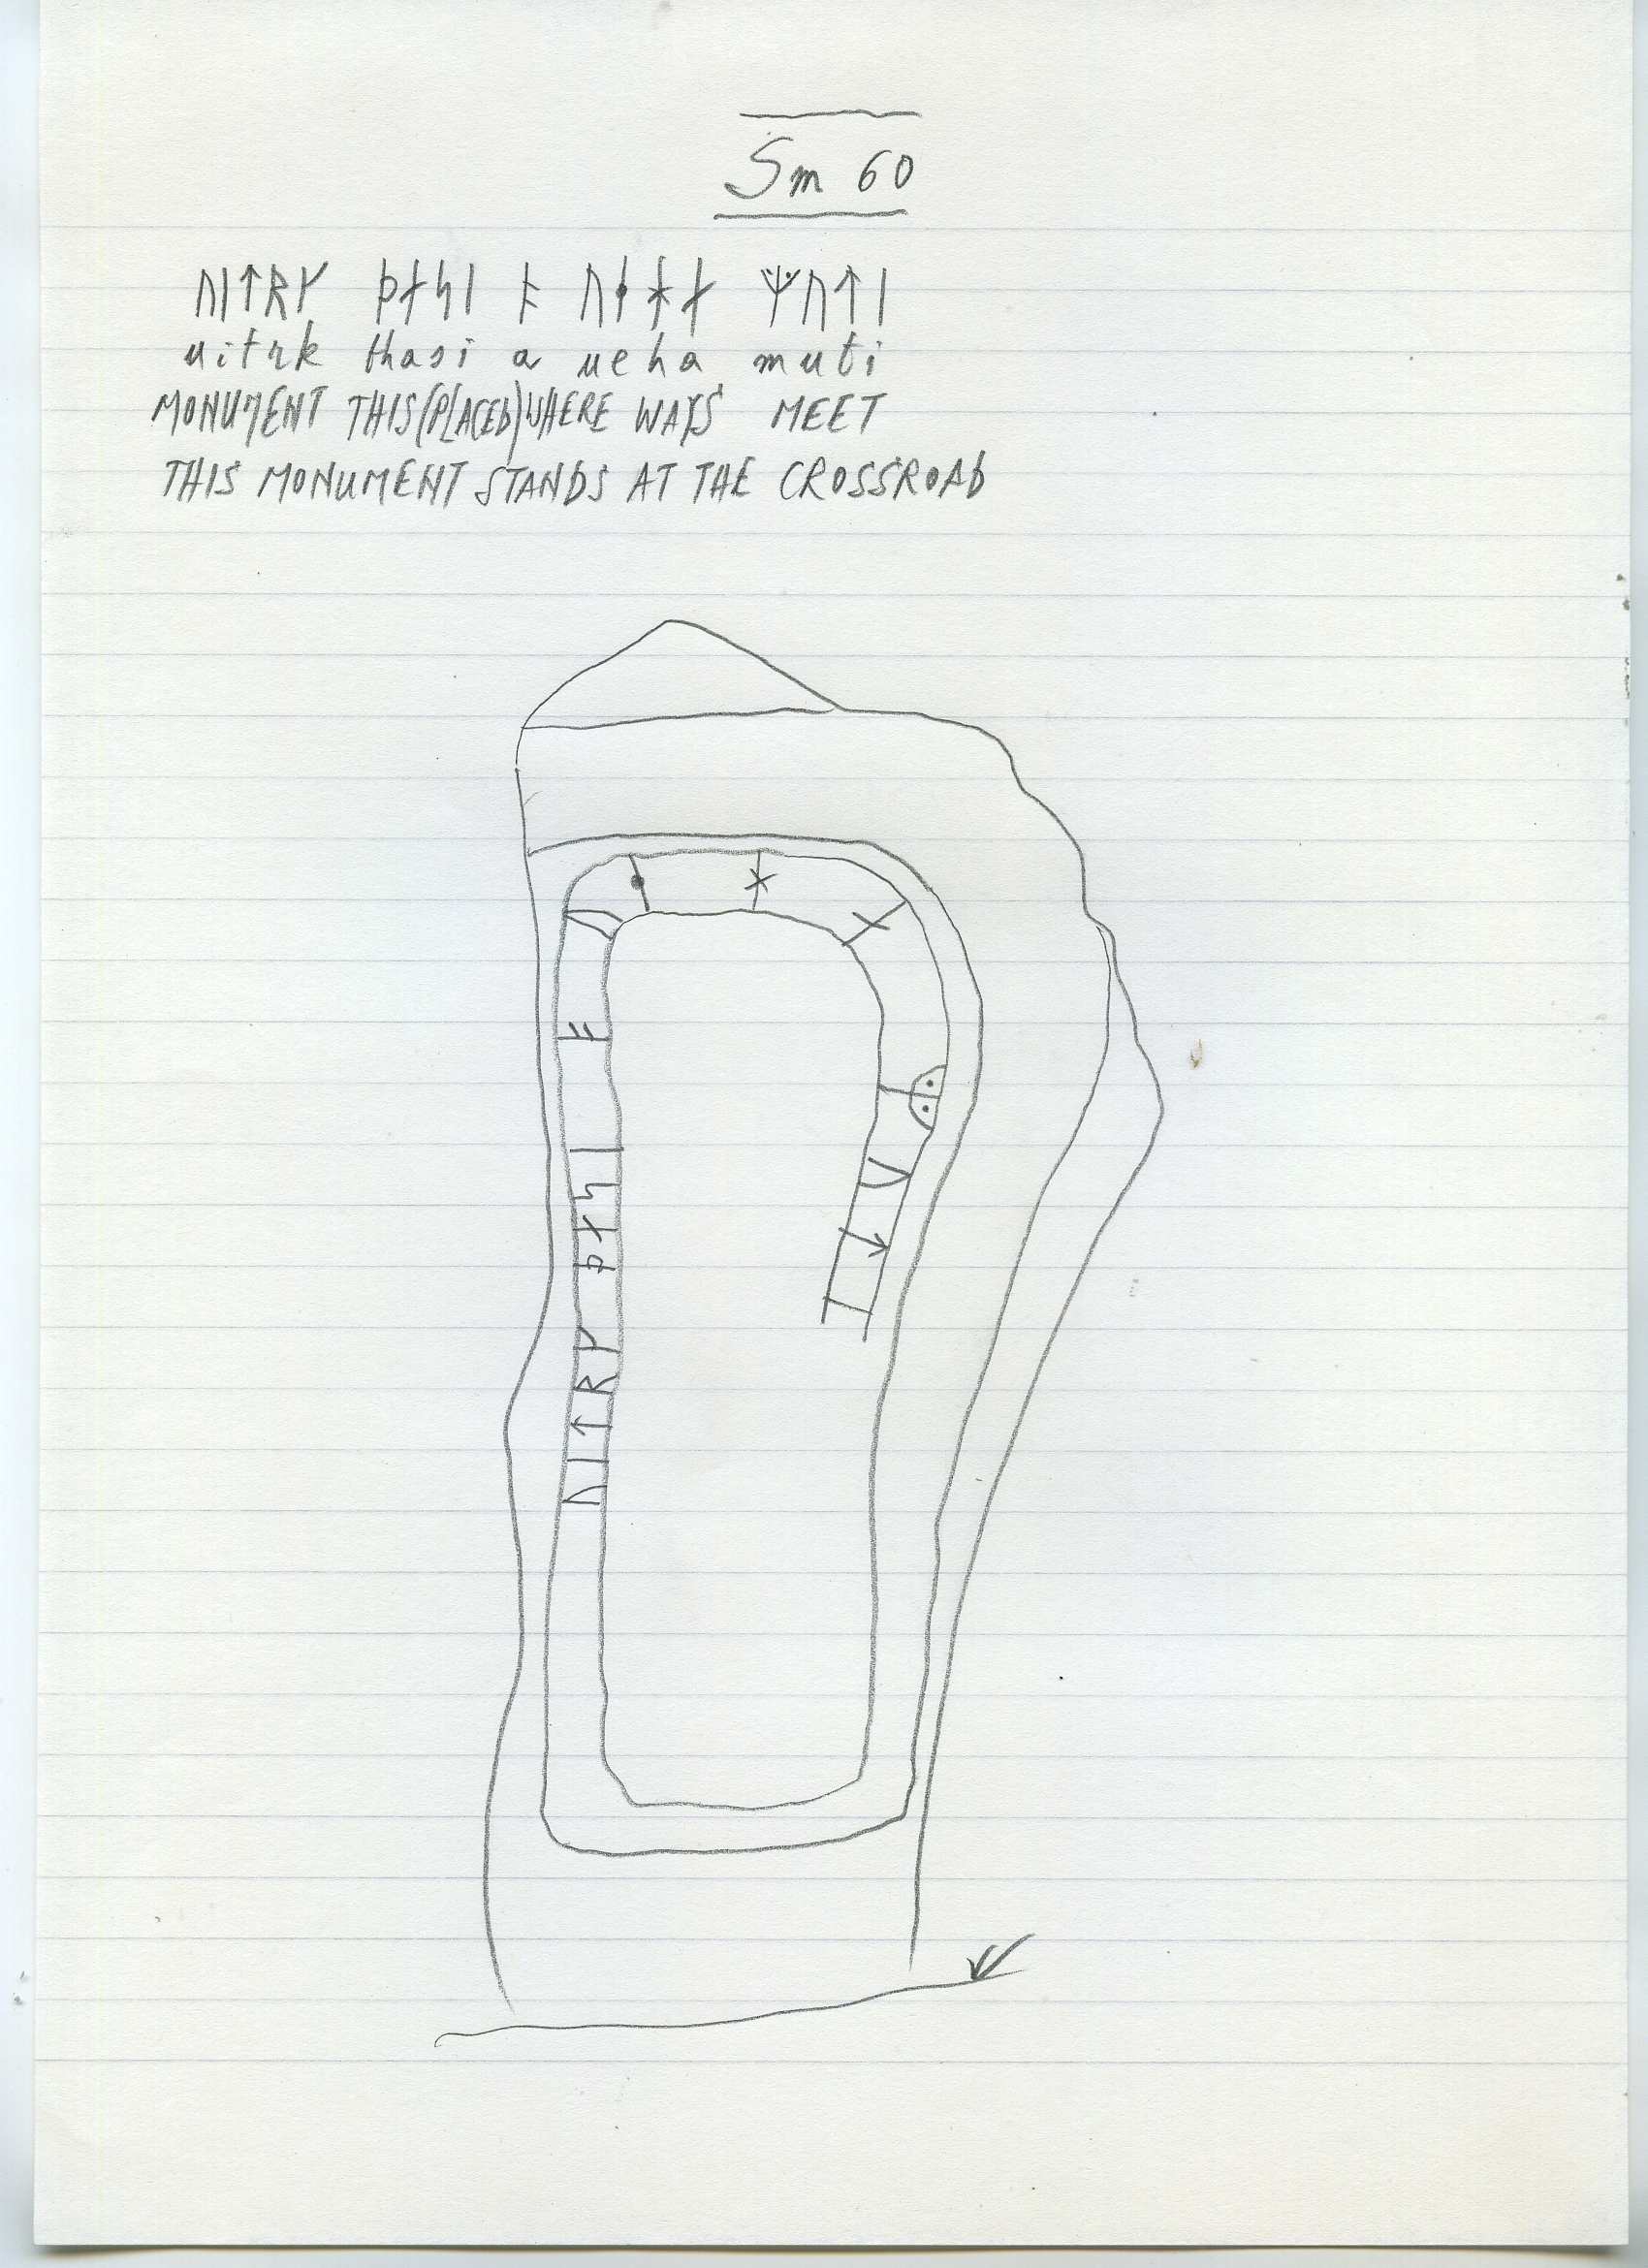 Sm 60
ᚢᛁᛏᚱᚴ ᚦᛅᛋᛁ ᚬ ᚢᛂᚼᛅ ᛘᚢᛏᛁ
uitrk thasi a ueha muti
MONUMENT THIS (PLACED) WHERE WAYS MEET
THIS MONUMENT STANDS AT THE CROSSROAD
ᚢᛁᛏᚱᚴ ᚦᛅᛋᛁ ᚬ ᚢᛂᚼᛅ ᛘᚢᛏᛁ